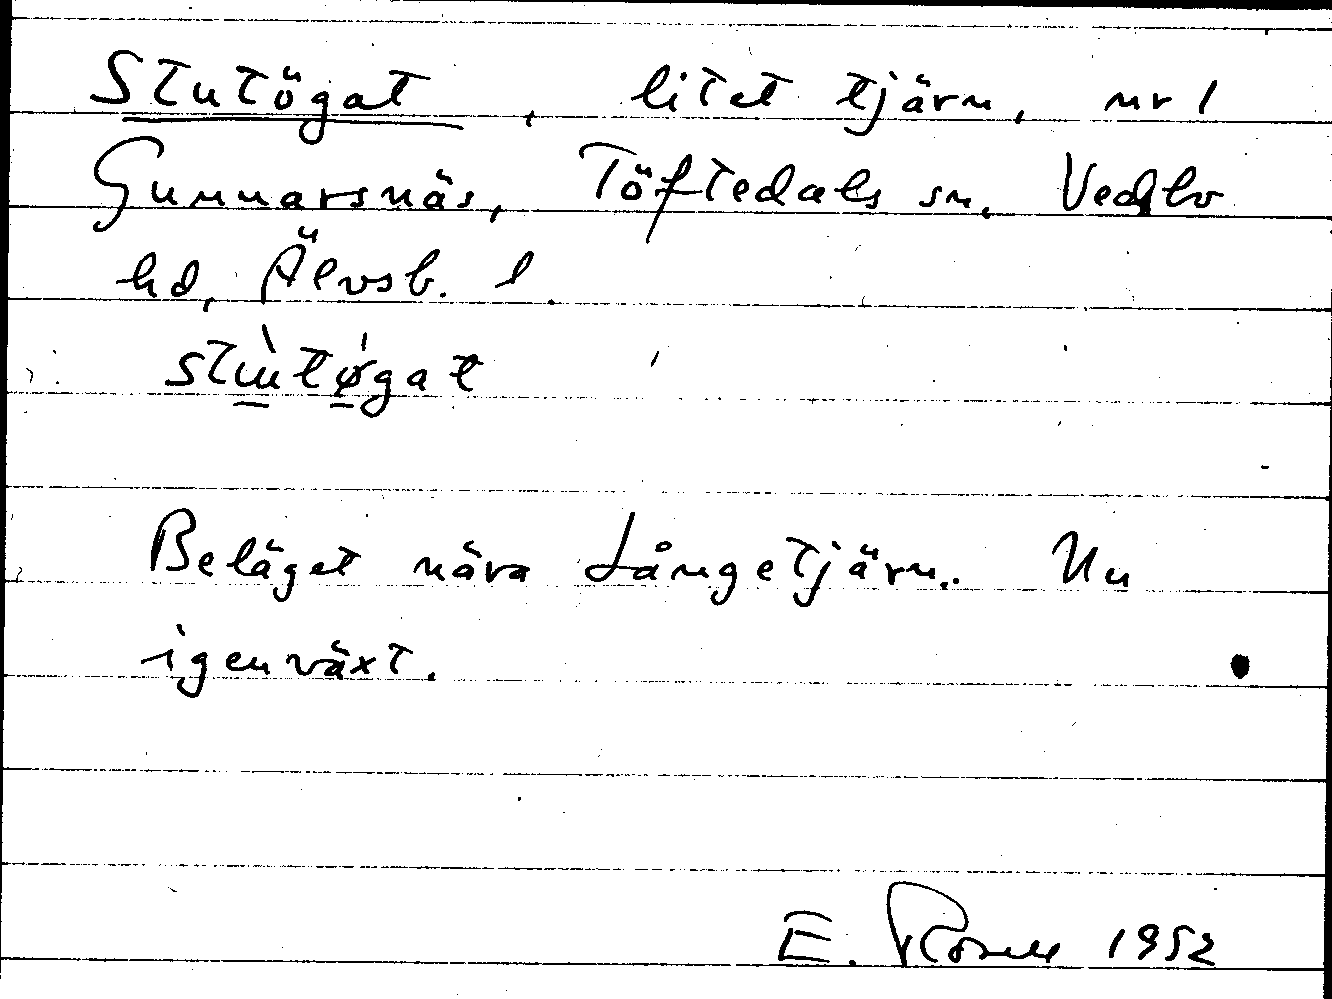 Stutögat, litet tjärn, nr 1
Gunnarsnäs, Töftedals sn. Vedbo
hd, Älvsb. l.
stùtø̀gat
Beläget nära Långetjärn. Nu
igenväxt.
E. Rosell 1952